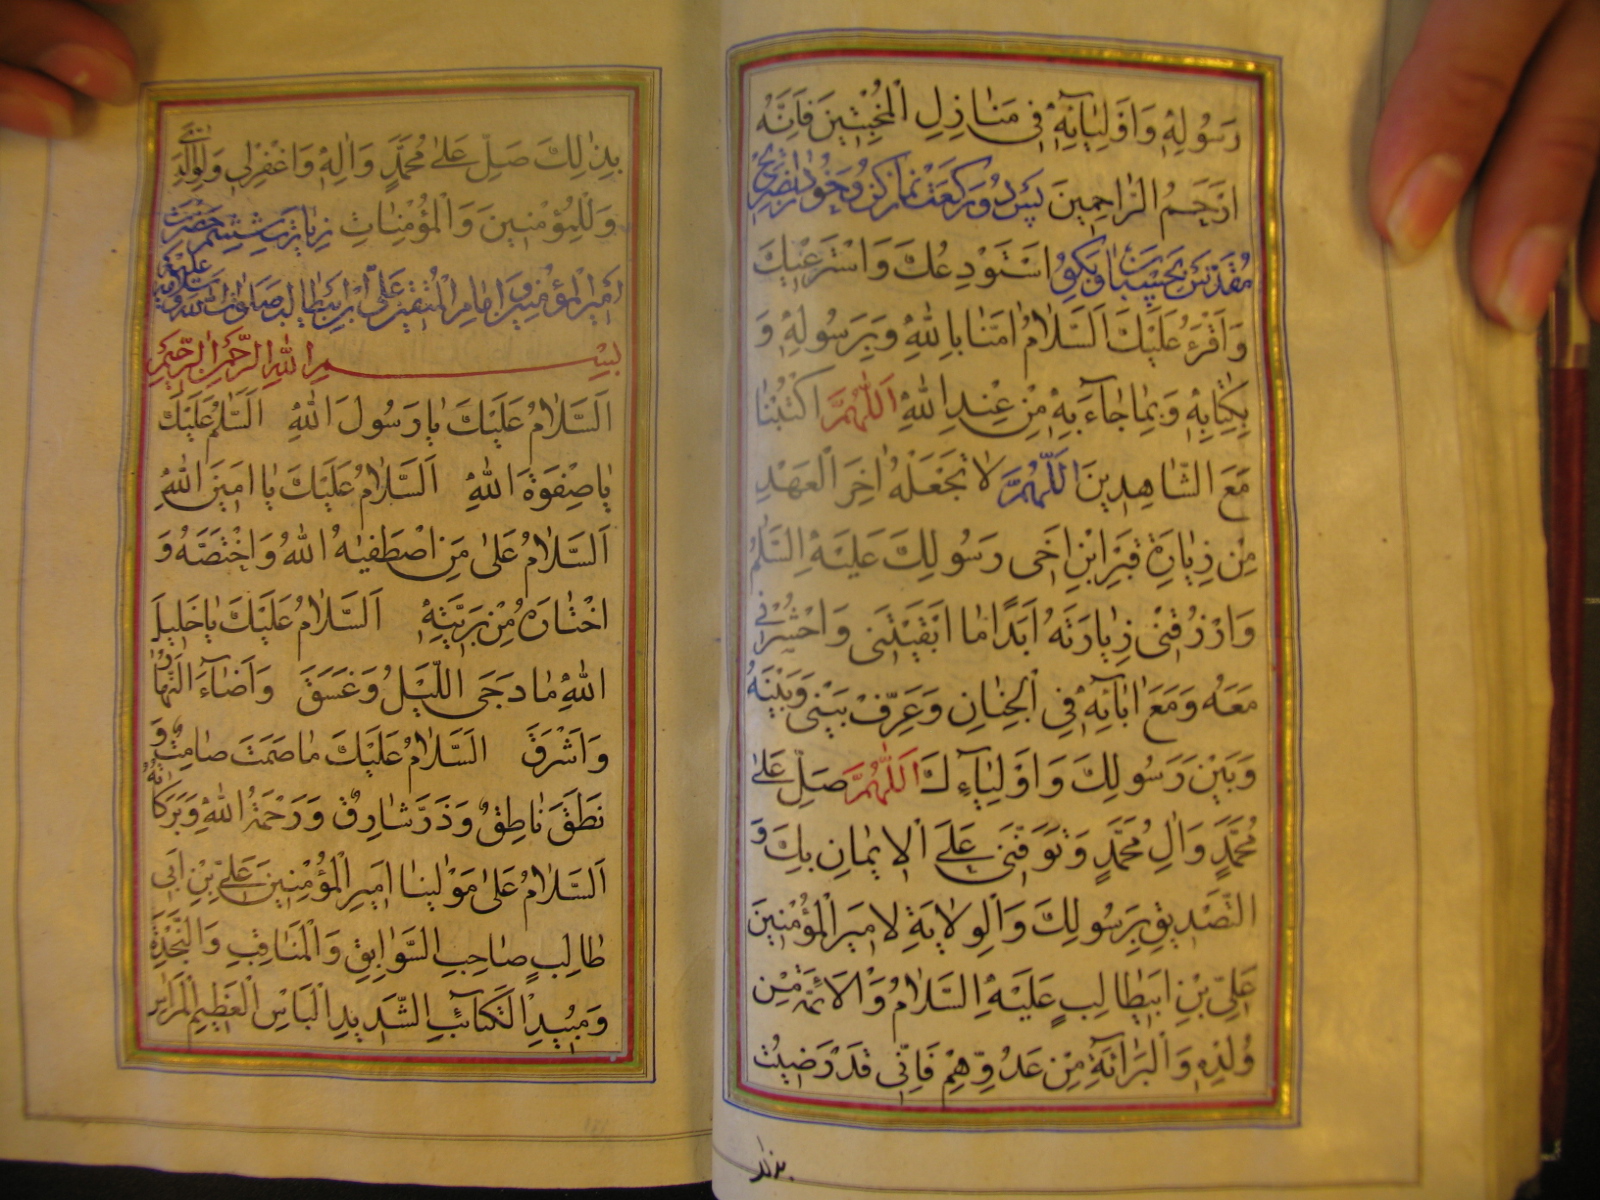 رَسُولِهِ وَاَوْلِيٰائِهِ فِى مَنٰازِلِ الْمُخْبِتِينَ فَاِنَّهُ
اَرْحَمُ الرّٰاحِمِينَ پس دو ركعت نماز كن و خود را بضريح
مقدس بچسبان و بگو اَسْتَوْدِعُكَ وَاَسْتَرْعِيكَ
وَاَقْرَءُ عَلَيْكَ السَّلٰامُ اٰمَنّٰا بِاللّٰهِ وَبِرَسُولِهِ وَ
بِكِتٰابِهِ وَبِمٰا جٰاءَ بِهِ مِنْ عِنْدِ اللّٰهِ اَللّٰهُمَّ اكْتُبْنٰا
مَعَ الشّٰاهِدِينَ اَللّٰهُمَّ لٰا تَجْعَلْهُ اٰخِرَ الْعَهْدِ
مِنْ زِيٰارَةِ قَبْرِ ابْنِ اَخِى رَسُولِكَ عَلَيْهِ السَّلٰمُ
وَارْزُقْنِى زِيٰارَتَهُ اَبَدًا مٰا اَبْقَيْتَنِى وَاحْشُرْنِى
مَعَهُ وَمَعَ اٰبٰائِهِ فِى الْجِنٰانِ وَعَرِّفْ بَيْنِى وَبَيْنَهُ
وَبَيْنَ رَسُولِكَ وَاَوْلِيٰاءِكَ اَللّٰهُمَّ صَلِّ عَلىٰ
مُحَمَّدٍ وَاٰلِ مُحَمَّدٍ وَتَوَفَّنِى عَلَى الْاِيمٰانِ بِكَ وَ
التَّصْدِيقِ بِرَسُولِكَ وَالْوِلٰايَةِ لِاَمِيرِ الْمُؤْمِنِينَ
عَلِىِّ بْنِ اَبِيطٰالِبٍ عَلَيْهِ السَّلٰامُ وَالْاَئِمَّةِ مِنْ
وُلْدِهِ وَالْبَرٰائَةِ مِنْ عَدُوِّهِمْ فَاِنِّى قَدْ رَضِيتُ
بذلك
بِذٰلِكَ صَلِّ عَلىٰ مُحَمَّدٍ وَاٰلِهِ وَاغْفِرْ لِى وَلِوٰالِدَىَّ
وَلِلْمُؤْمِنِينَ وَالْمُؤْمِنٰاتِ زيارت ششم حضرت
امير المؤمنين و امام المتقين على ابن ابيطالب صلوات الله و سلامه عليه
بِسْمِ اللّٰهِ الرَّحْمٰنِ الرَّحِيمِ
اَلسَّلٰامُ عَلَيْكَ يٰا رَسُولَ اللّٰهِ اَلسَّلٰمُ عَلَيْكَ
يٰا صِفْوَةَ اللّٰهِ اَلسَّلٰامُ عَلَيْكَ يٰا اَمِينَ اللّٰهِ
اَلسَّلٰامُ عَلىٰ مَنِ اصْطَفٰيهُ اللّٰهُ وَاخْتَصَّهُ وَ
اخْتٰارَهُ مِنْ بَرِيَّتِهِ اَلسَّلٰامُ عَلَيْكَ يٰا خَلِيلَ
اللّٰهِ مٰا دَجَى اللَّيْلُ وَغَسَقَ وَاَضٰاءَ النَّهٰارُ
وَاَشْرَقَ اَلسَّلٰامُ عَلَيْكَ مٰا صَمَتَ صٰامِتٌ وَ
نَطَقَ نٰاطِقٌ وَذَرَّ شٰارِقٌ وَرَحْمَةُ اللّٰهِ وَبَرَكٰاتُهُ
اَلسَّلٰامُ عَلىٰ مَوْلٰينٰا اَمِيرِ الْمُؤْمِنِينَ عَلِىِّ بْنِ اَبِى
طٰالِبٍ صٰاحِبِ السَّوٰابِقِ وَالْمَنٰاقِبِ وَالنَّجْدَةِ
وَمُبِيدِ الْكَتٰائِبِ الشَّدِيدِ الْبَاْسِ الْعَظِيمِ الْمِرٰاسِ